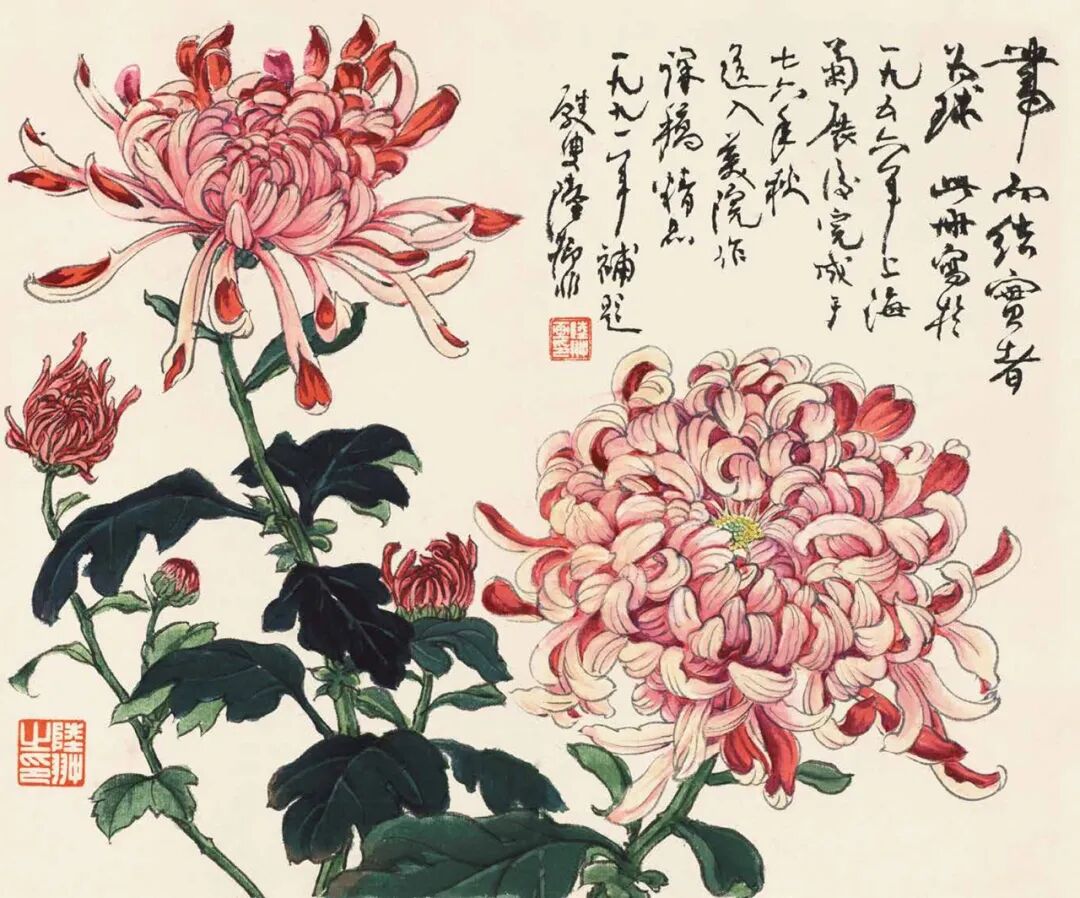 華而結實者
球 此冊寫於
一九五六年上海
菊展后完成于
七六年秋
送入美院作
課稿精品
一九九一年補題
陸抑非
陸翀之印